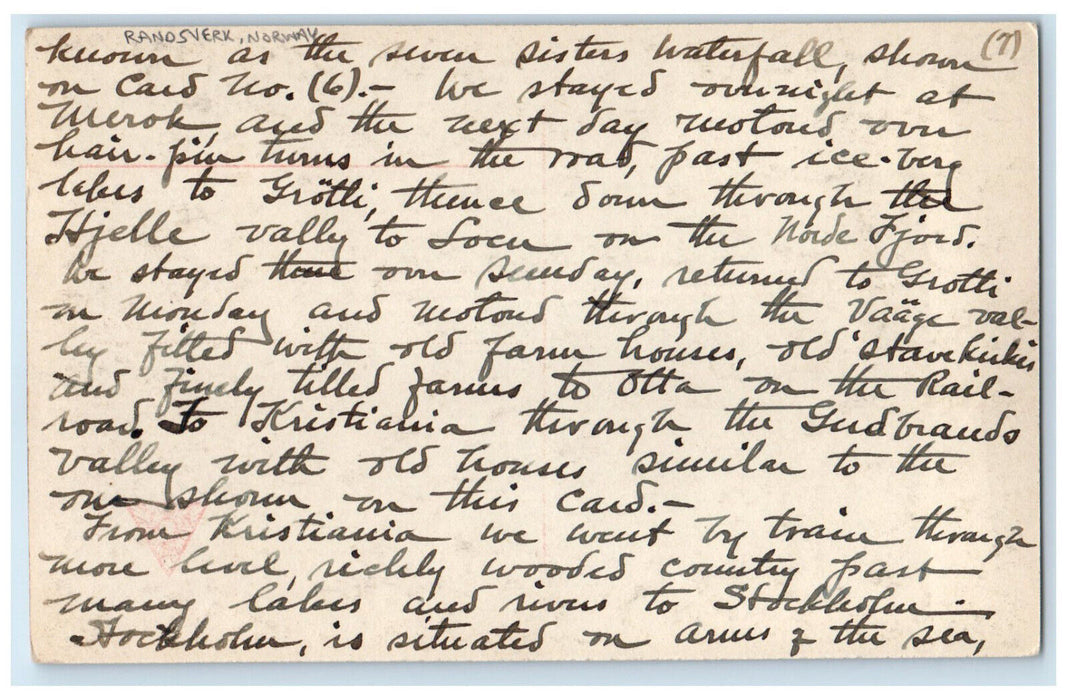 RANDSVERK, NORWAY
(7)
known as the seven sisters waterfall, shown
on Card No. (6).- We stayed overnight at
Merok, and the next day motored over
hair-pin turns in the road, past ice-berg
lakes to Grötli, thence down through the
Hjelle vally to Loen on the Norde Fjord.
We stayed there over Sunday, returned to Grotli
on Monday and motored through the Vääge val-
ley filled with old farm houses, old stavekirkis
and finely tilled farms to Otta on the Rail-
road. To Kristiania through the Gudbrands
valley with old houses similar to the
one shown on this Card.-
From Kristiania we went by train through
more level, richly wooded country past
many lakes and rivers to Stockholm.-
Stockholm, is situated on arms of the sea,